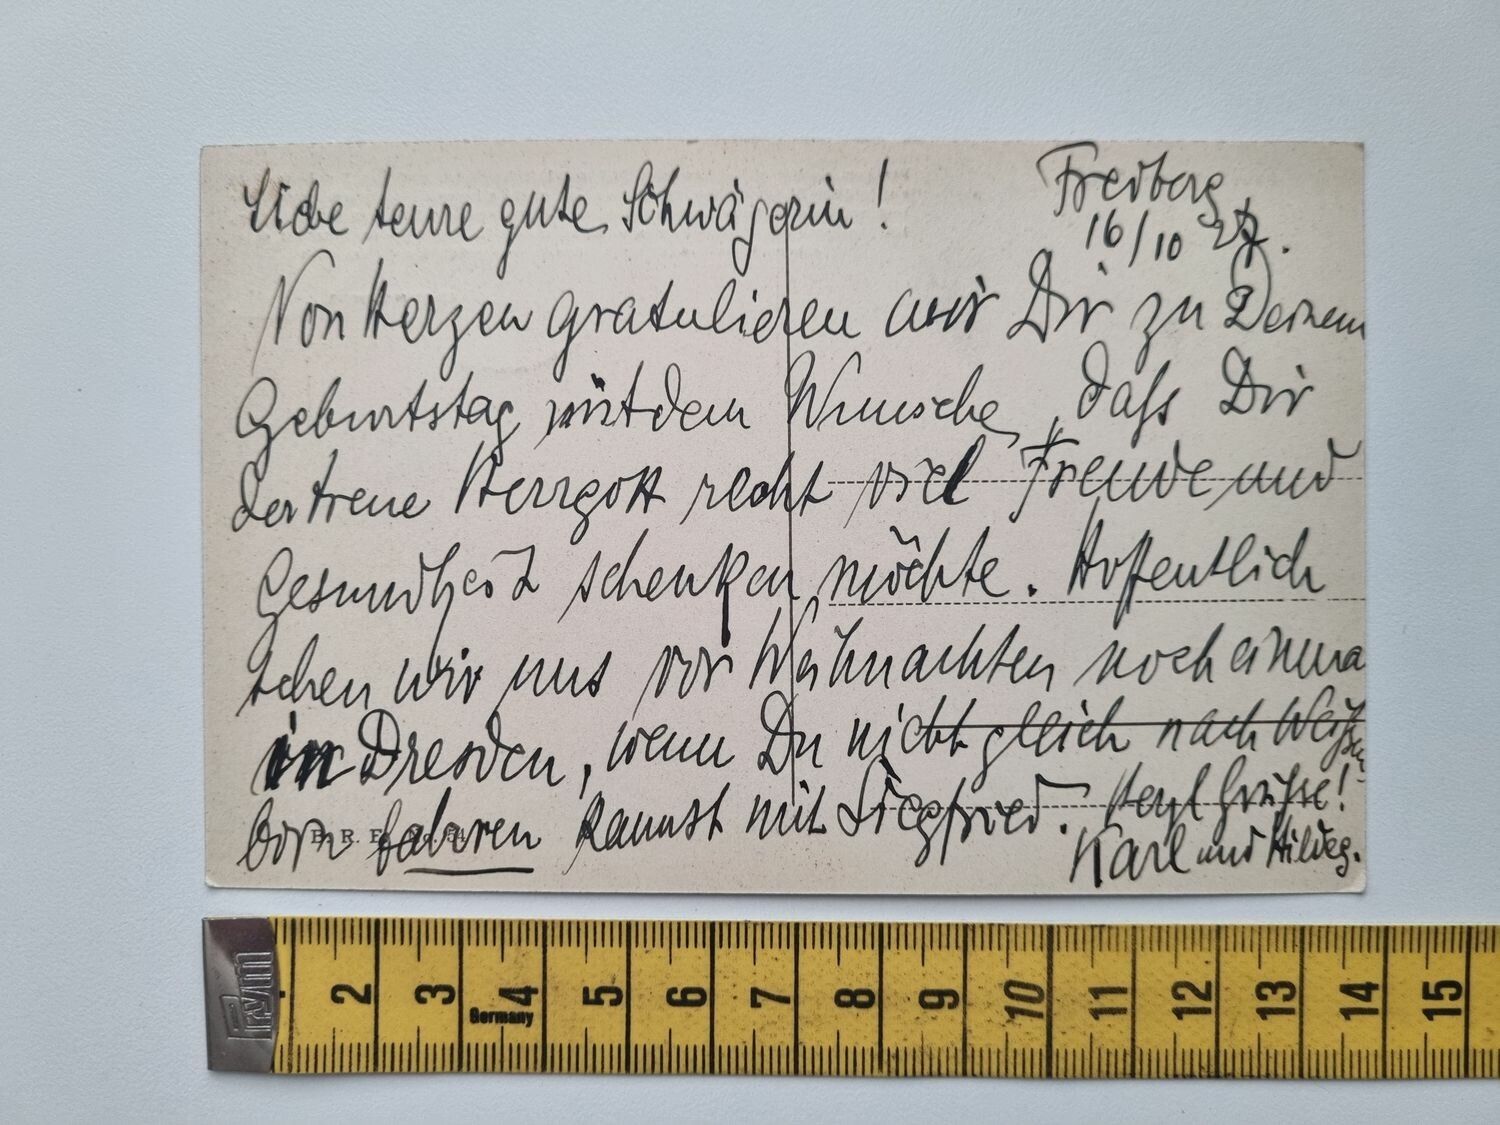 Liebe teure gute Schwägerin!
Freiberg
16/10 27.
Von Herzen gratulieren wir Dir zu Deinem
Geburtstag mit dem Wunsche, daß Dir
der treue Herrgott recht viel Freude und
Gesundheit schenken möchte. Hoffentlich
sehen wir uns vor Weihnachten noch einma
in Dresden, wenn Du nicht gleich nach Weißen
born fahren kannst mit Siegfried. Herzl Grüße!
Karl und Hildeg.
Prym
2 3 4 5 6 7 8 9 10 11 12 13 14 15
Germany